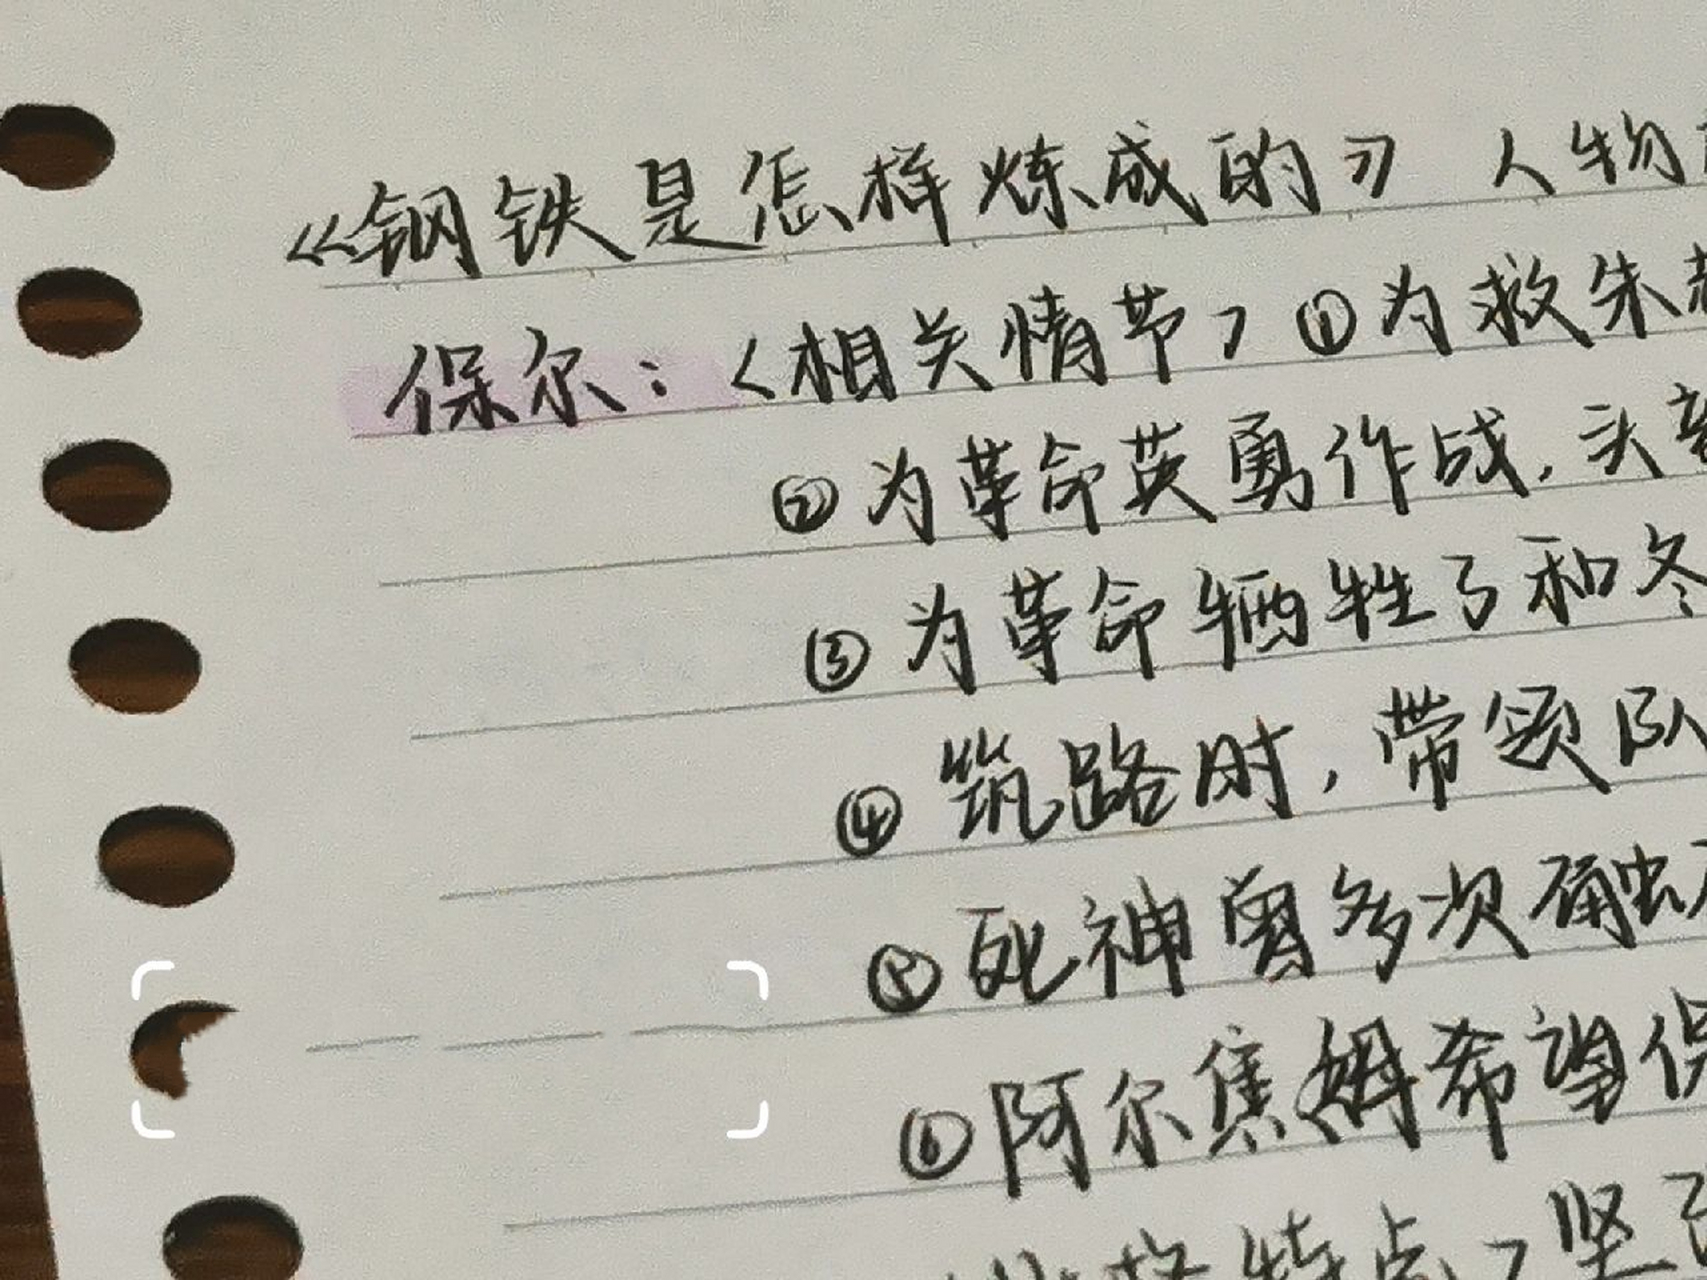 《钢铁是怎样炼成的》人物
保尔：〈相关情节〉①为救朱
②为革命英勇作战，头部
③为革命牺牲了和冬
④筑路时，带领队
⑤死神曾多次触
⑥阿尔焦姆希望保
性格特点〉坚